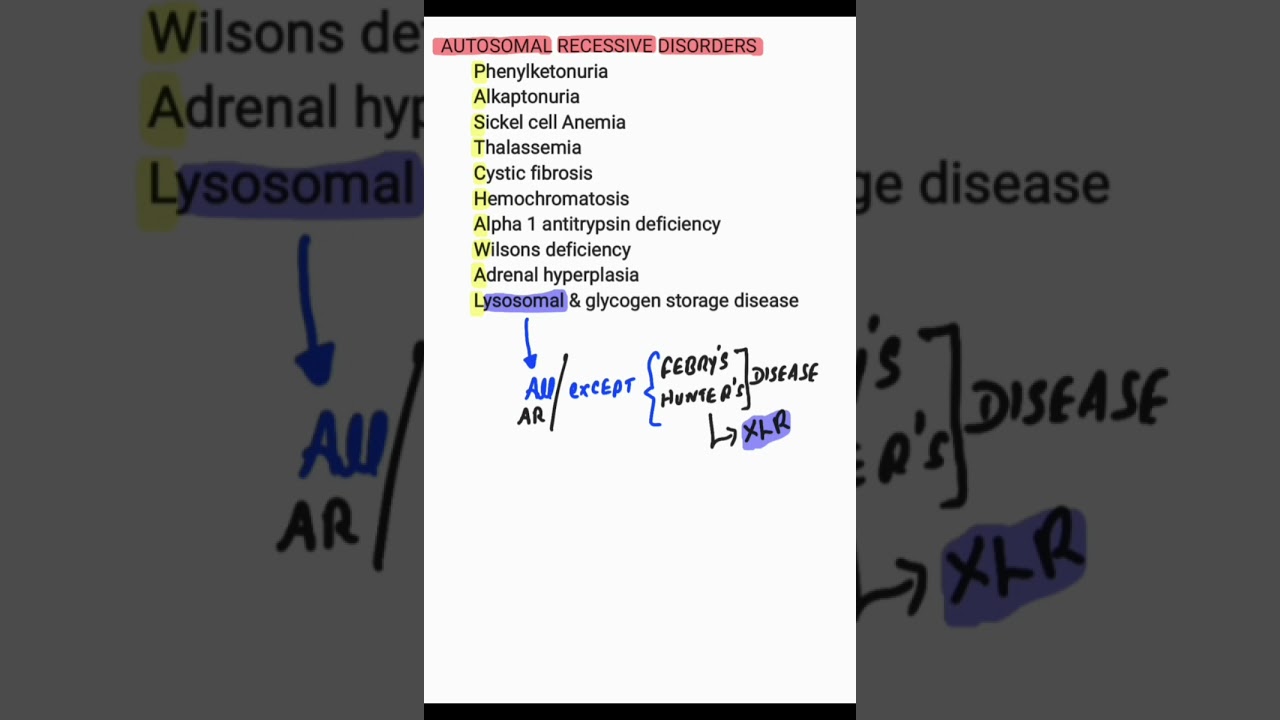 AUTOSOMAL RECESSIVE DISORDERS
Phenylketonuria
Alkaptonuria
Sickel cell Anemia
Thalassemia
Cystic fibrosis
Hemochromatosis
Alpha 1 antitrypsin deficiency
Wilsons deficiency
Adrenal hyperplasia
Lysosomal & glycogen storage disease
All AR / EXCEPT { FEBRY'S HUNTER'S ] DISEASE
↳ XLR
Wilsons de
Adrenal hyp
Lysosomal
ge disease
All
AR /
'S
ER'S ] DISEASE
→ XLR